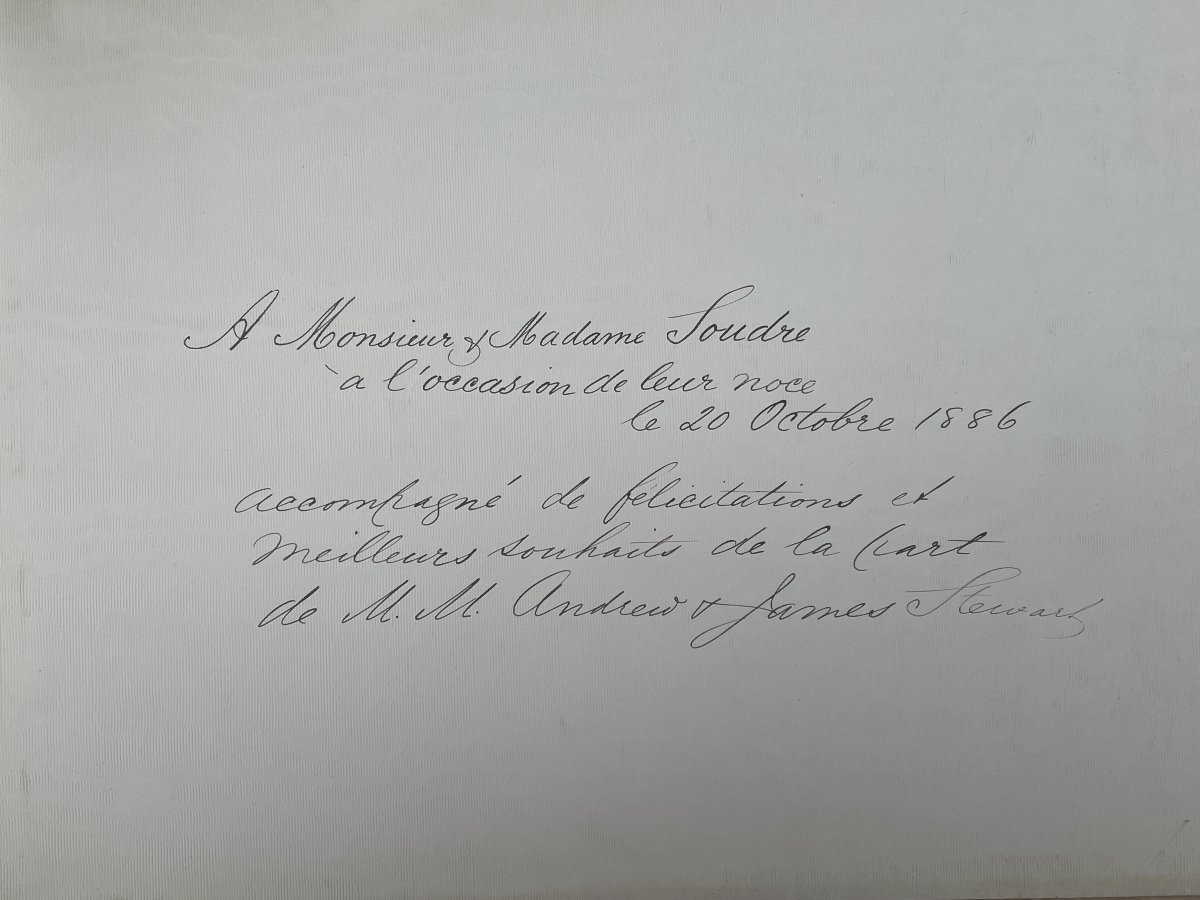 A Monsieur & Madame Soudre
à l'occasion de leur noce
le 20 Octobre 1886
accompagné de félicitations et
meilleurs souhaits de la part
de M. M. Andrew & James Stewart